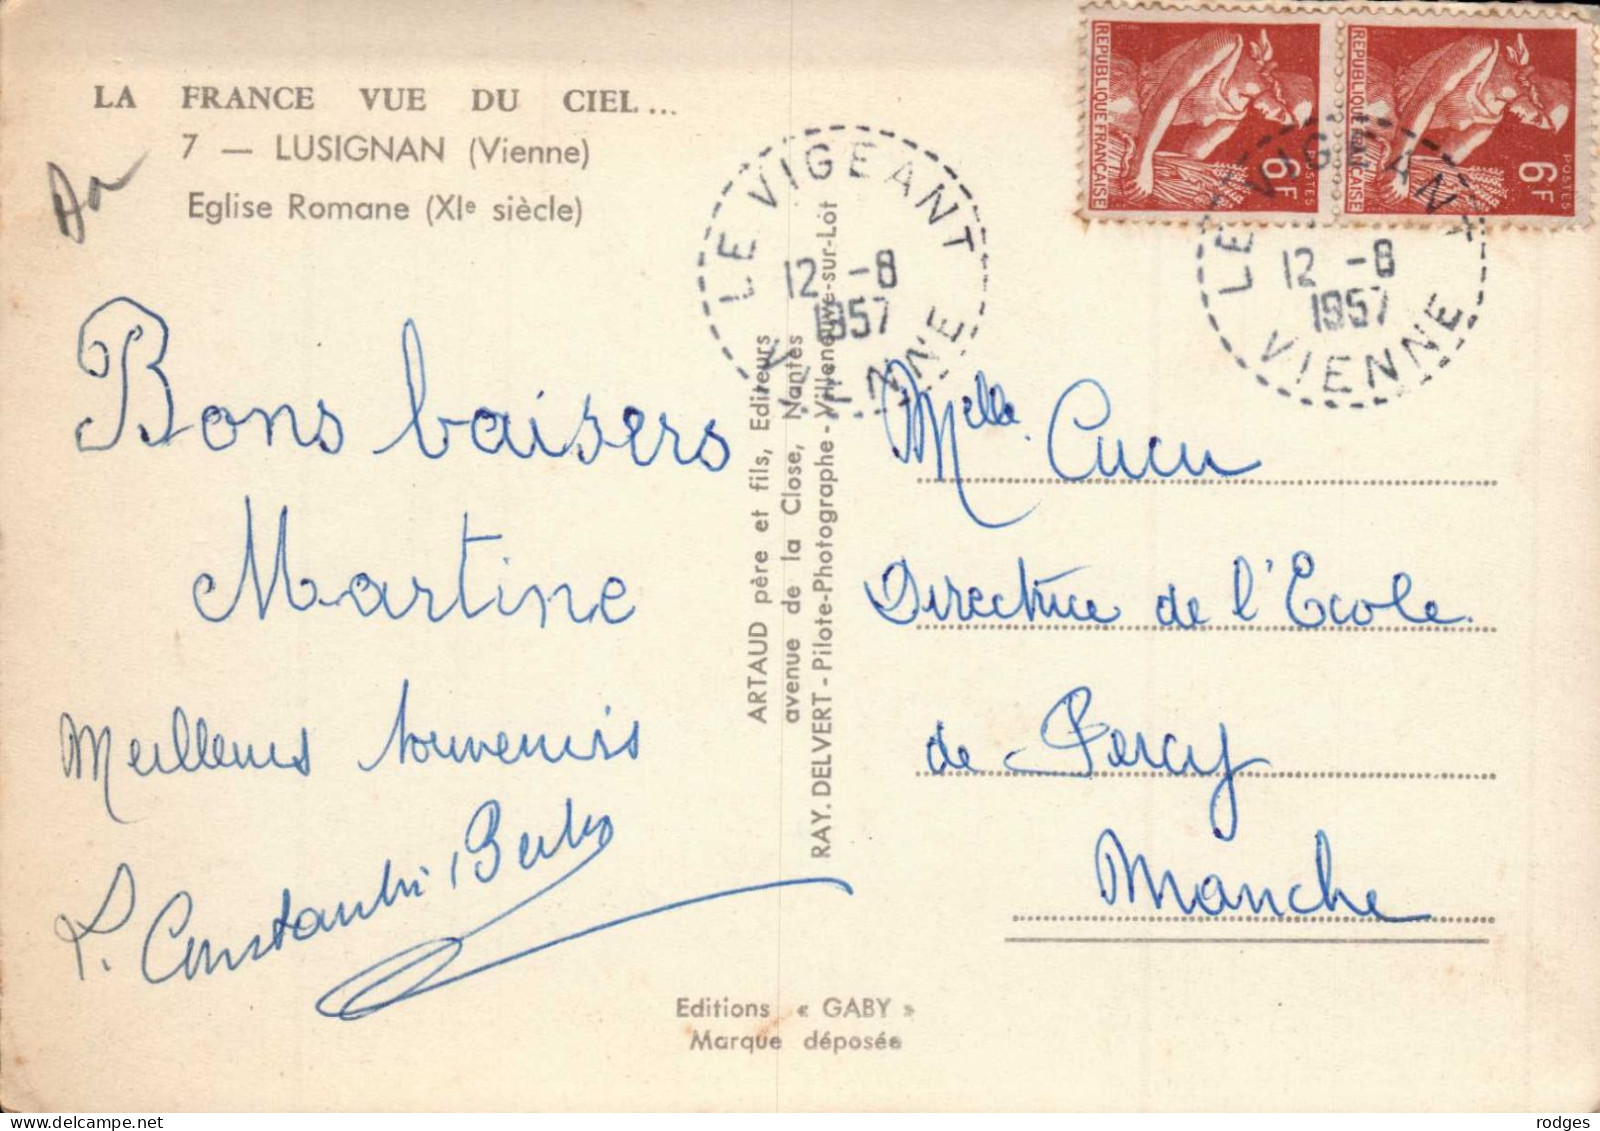 LA FRANCE VUE DU CIEL...
7 — LUSIGNAN (Vienne)
Eglise Romane (XIe siècle)
Bons baisers
Martine
Meilleurs souvenirs
REPUBLIQUE FRANÇAISE
6F
POSTES
REPUBLIQUE FRANÇAISE
6F
POSTES
LE VIGEANT
12 -8
1957
VIENNE
LE VIGEANT
12 -8
1957
VIENNE
ARTAUD père et fils, Editeurs
avenue de la Close, Nantes
RAY. DELVERT - Pilote-Photographe - Villeneuve-sur-Lot
Melle. Cucu
Directrice de l'Ecole.
de Percy
Manche
Editions « GABY »
Marque déposée
rodges